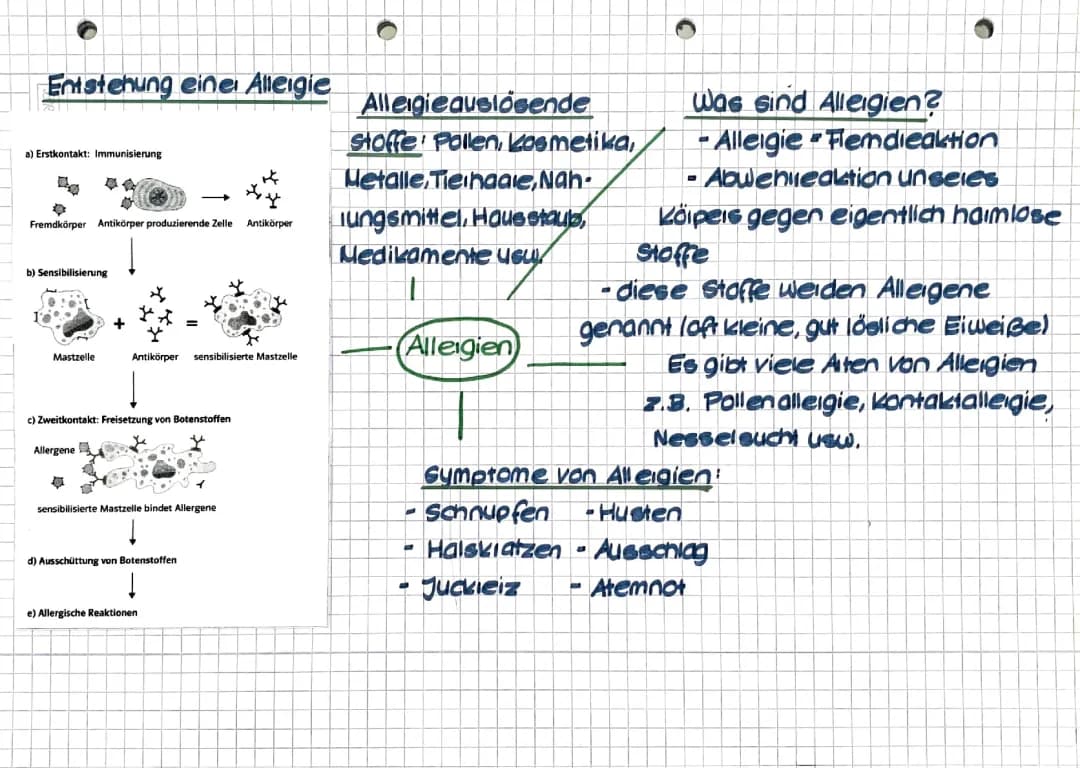 Entstehung einer Allergie
a) Erstkontakt: Immunisierung
Fremdkörper Antikörper produzierende Zelle Antikörper
b) Sensibilisierung
+ =
Mastzelle Antikörper sensibilisierte Mastzelle
c) Zweitkontakt: Freisetzung von Botenstoffen
Allergene
sensibilisierte Mastzelle bindet Allergene
d) Ausschüttung von Botenstoffen
e) Allergische Reaktionen
Allergieauslösende
Stoffe: Pollen, Kosmetika,
Metalle, Tierhaare, Nah-
rungsmittel, Hausstaub,
Medikamente usw.
Allergien
Was sind Allergien?
- Allergie = Fremdreaktion
- Abwehrreaktion unseres
Körpers gegen eigentlich harmlose
Stoffe
- diese Stoffe werden Allergene
genannt (oft kleine, gut lösliche Eiweiße)
Es gibt viele Arten von Allergien
z.B. Pollenallergie, Kontaktallergie,
Nesselsucht usw.
Symptome von Allergien:
- Schnupfen - Husten
- Halskratzen - Ausschlag
- Juckreiz - Atemnot